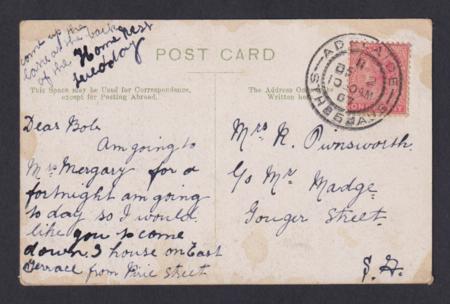 come up the
lane at the back
of the Home next
tuesday
POST CARD
This Space may be Used for Correspondence,
except for Posting Abroad.
The Address Only
Written here
ADELAIDE
11
10 30 AM
07
STH AUS
Dear Bob
Am going to
Mrs Mergary for a
fortnight am going
to day so I would
like you to come
down. 3 house on East
Terrace from Pirie street
Mrs R. Punsworth.
C/o Mr Madge
Gouger Street.
S.A.